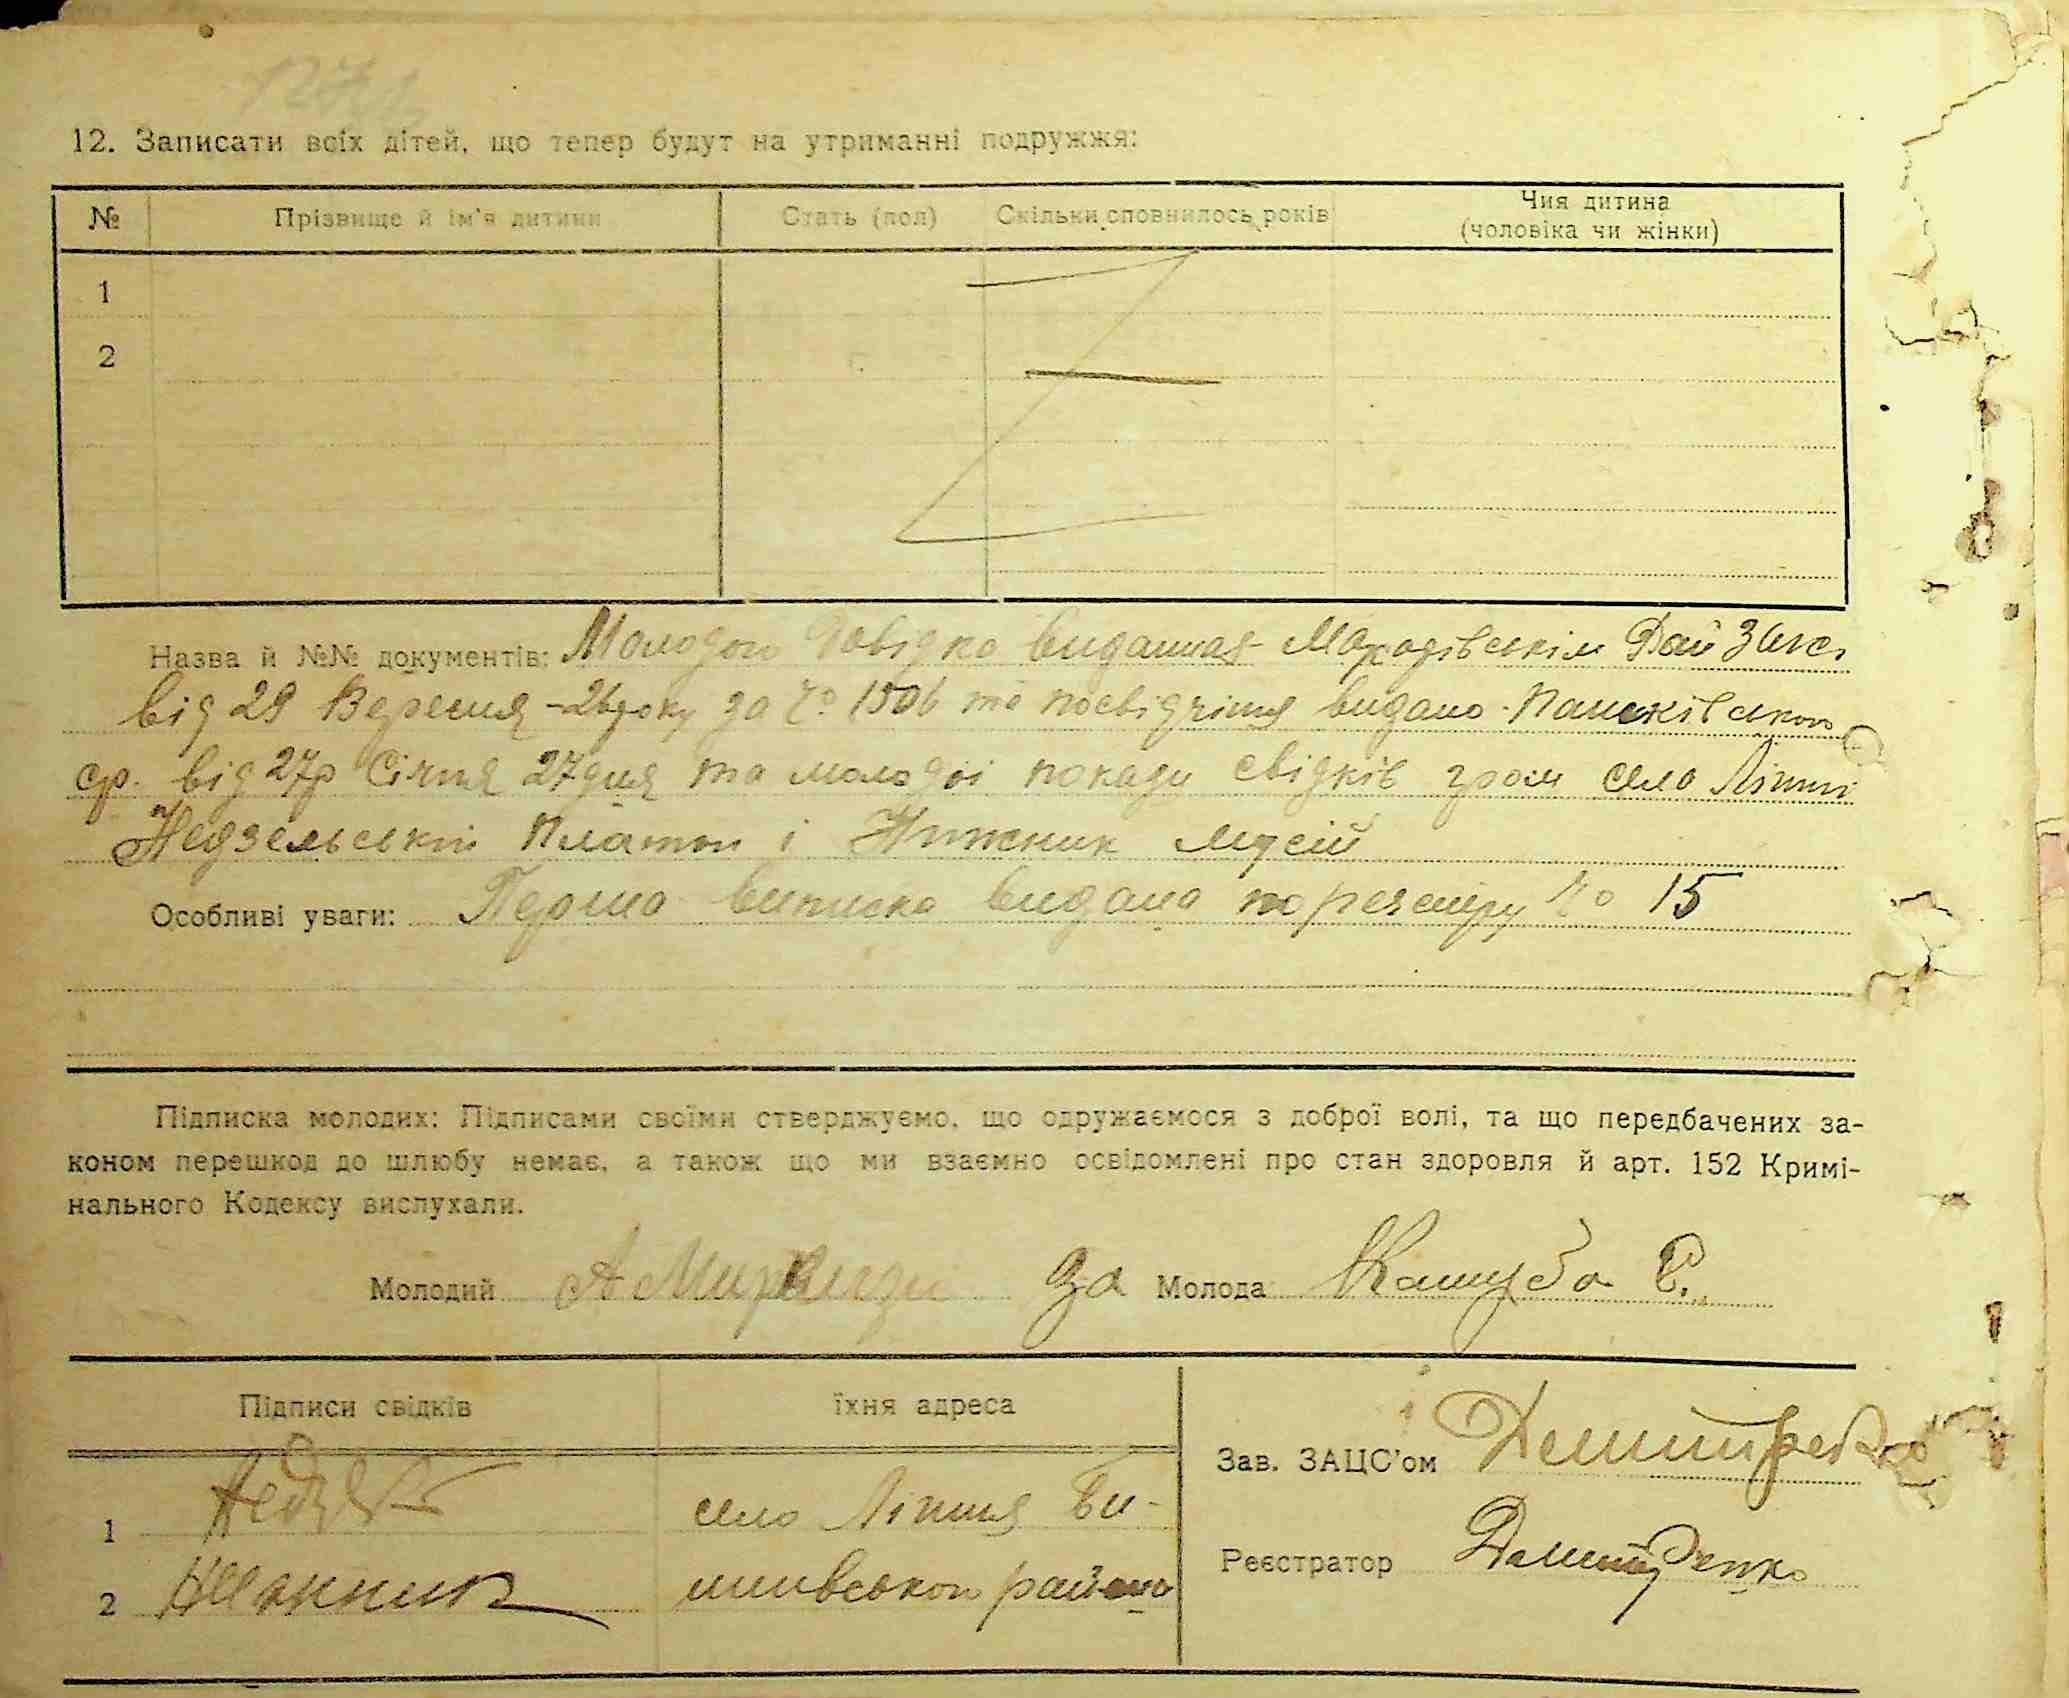 12. Записати всіх дітей, що тепер будут на утриманні подружжя:
№ Прізвище й ім'я дитини Стать (пол) Скільки сповнилось років Чия дитина
(чоловіка чи жінки)
1
2
Назва й №№ документів: Молодои довідка виданная
від 29 Вересня -26 року за № 1506 та посвідчіння видано
ср. від 27р Січня 27 дня та молодоі покази свідків гром село Ліпині
Недзельський Платон і Нижник Мусій
Особливі уваги: Перша виписка видана по реэстру № 15
Підписка молодих: Підписами своїми стверджуємо, що одружаємося з доброї волі, та що передбачених за-
коном перешкод до шлюбу немає, а також що ми взаємно освідомлені про стан здоровля й арт. 152 Кримі-
нального Кодексу вислухали.
Молодий за Молода Кашуба Є.
Підписи свідків їхня адреса
Зав. ЗАЦС'ом
1 село Ліпня Би-
2 Нижник шивського района
Реєстратор